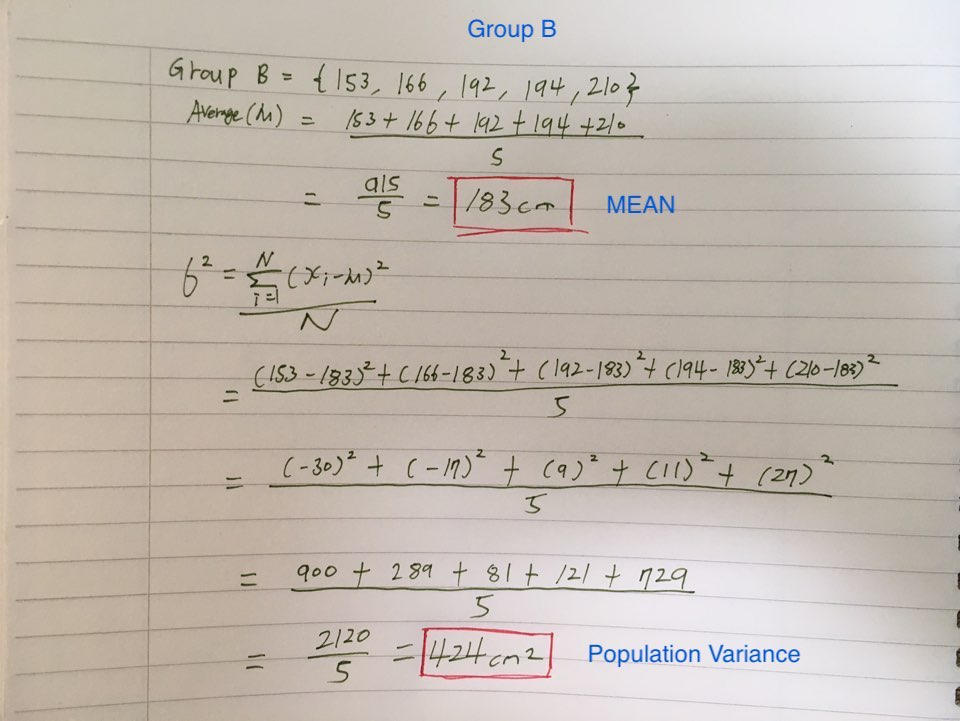 Group B
Group B = {153, 166, 192, 194, 210}
Average(μ) = 153 + 166 + 192 + 194 + 210
5
= 915/5 = 183 cm MEAN
σ² = N Σ i=1 (xi - μ)²
N
= (153 - 183)² + (166 - 183)² + (192 - 183)² + (194 - 183)² + (210 - 183)²
5
= (-30)² + (-17)² + (9)² + (11)² + (27)²
5
= 900 + 289 + 81 + 121 + 729
5
= 2120/5 = 424 cm2 Population Variance